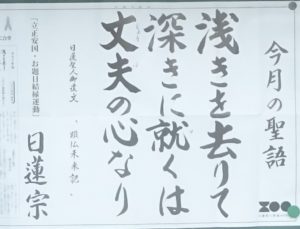 今月の聖語
浅きを去りて
深きに就くは
丈夫の心なり
日蓮聖人御遺文
「顕仏未来記」
「立正安国・お題目結縁運動」
日蓮宗